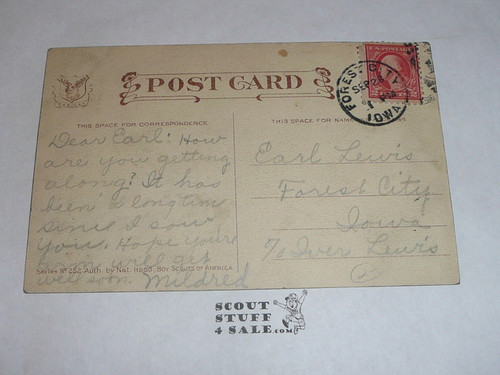 U.S. POSTAGE
POST CARD
FOREST CITY
SEP 26
IOWA
THIS SPACE FOR CORRESPONDENCE
THIS SPACE FOR NAME
Dear Earl: How
are you getting
along? It has
been a longtime
since I saw
you. Hope you're
will get
well soon. Mildred
Series No 252 Auth. by Nat. Hdqd. Boy Scouts of America.
Earl Lewis
Forest City
Iowa
℅ Iver Lewis
SCOUT
STUFF
4 SALE.com